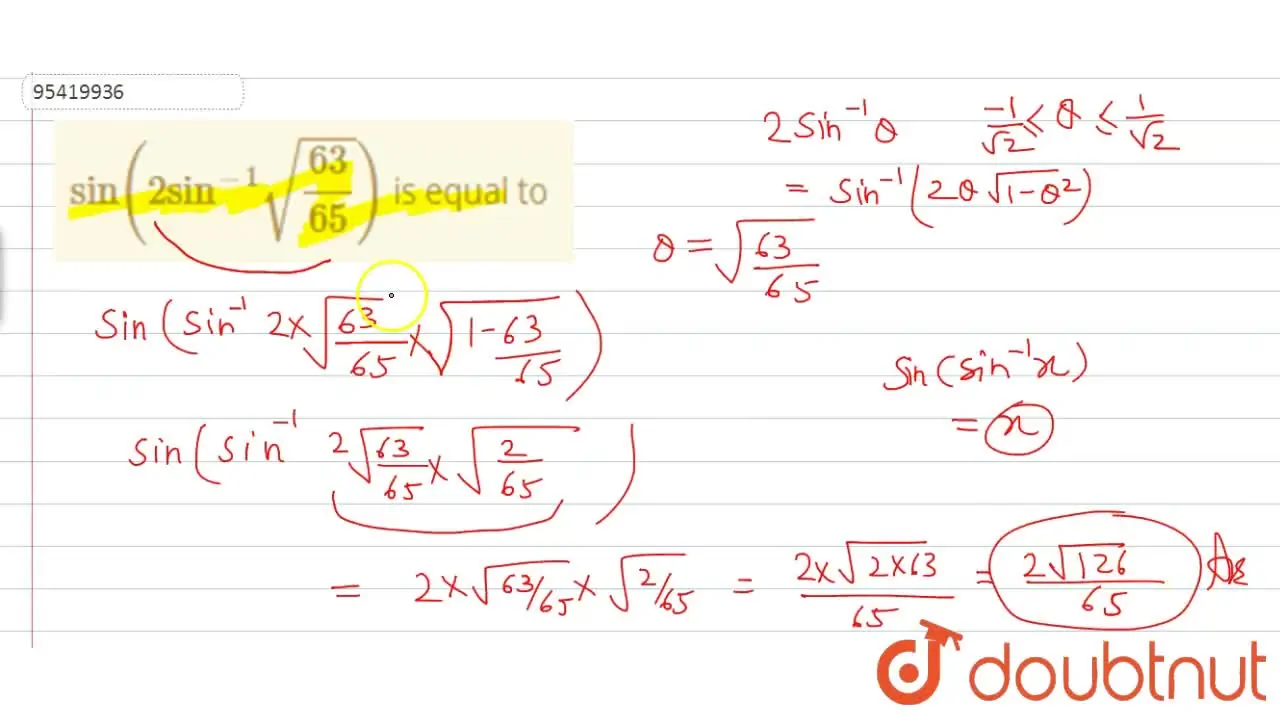 95419936
sin(2sin⁻¹√(63/65)) is equal to
2 Sin⁻¹ θ    -1/√2 ≤ θ ≤ 1/√2
= Sin⁻¹(2θ√(1-θ²))
θ = √(63/65)
Sin(Sin⁻¹ 2×√(63/65)×√(1-63/65))
Sin(Sin⁻¹x)
= x
Sin(Sin⁻¹ 2√(63/65)×√(2/65))
= 2×√(63/65)×√(2/65) = (2×√(2×63))/65 = (2√126)/65 Ans
doubtnut